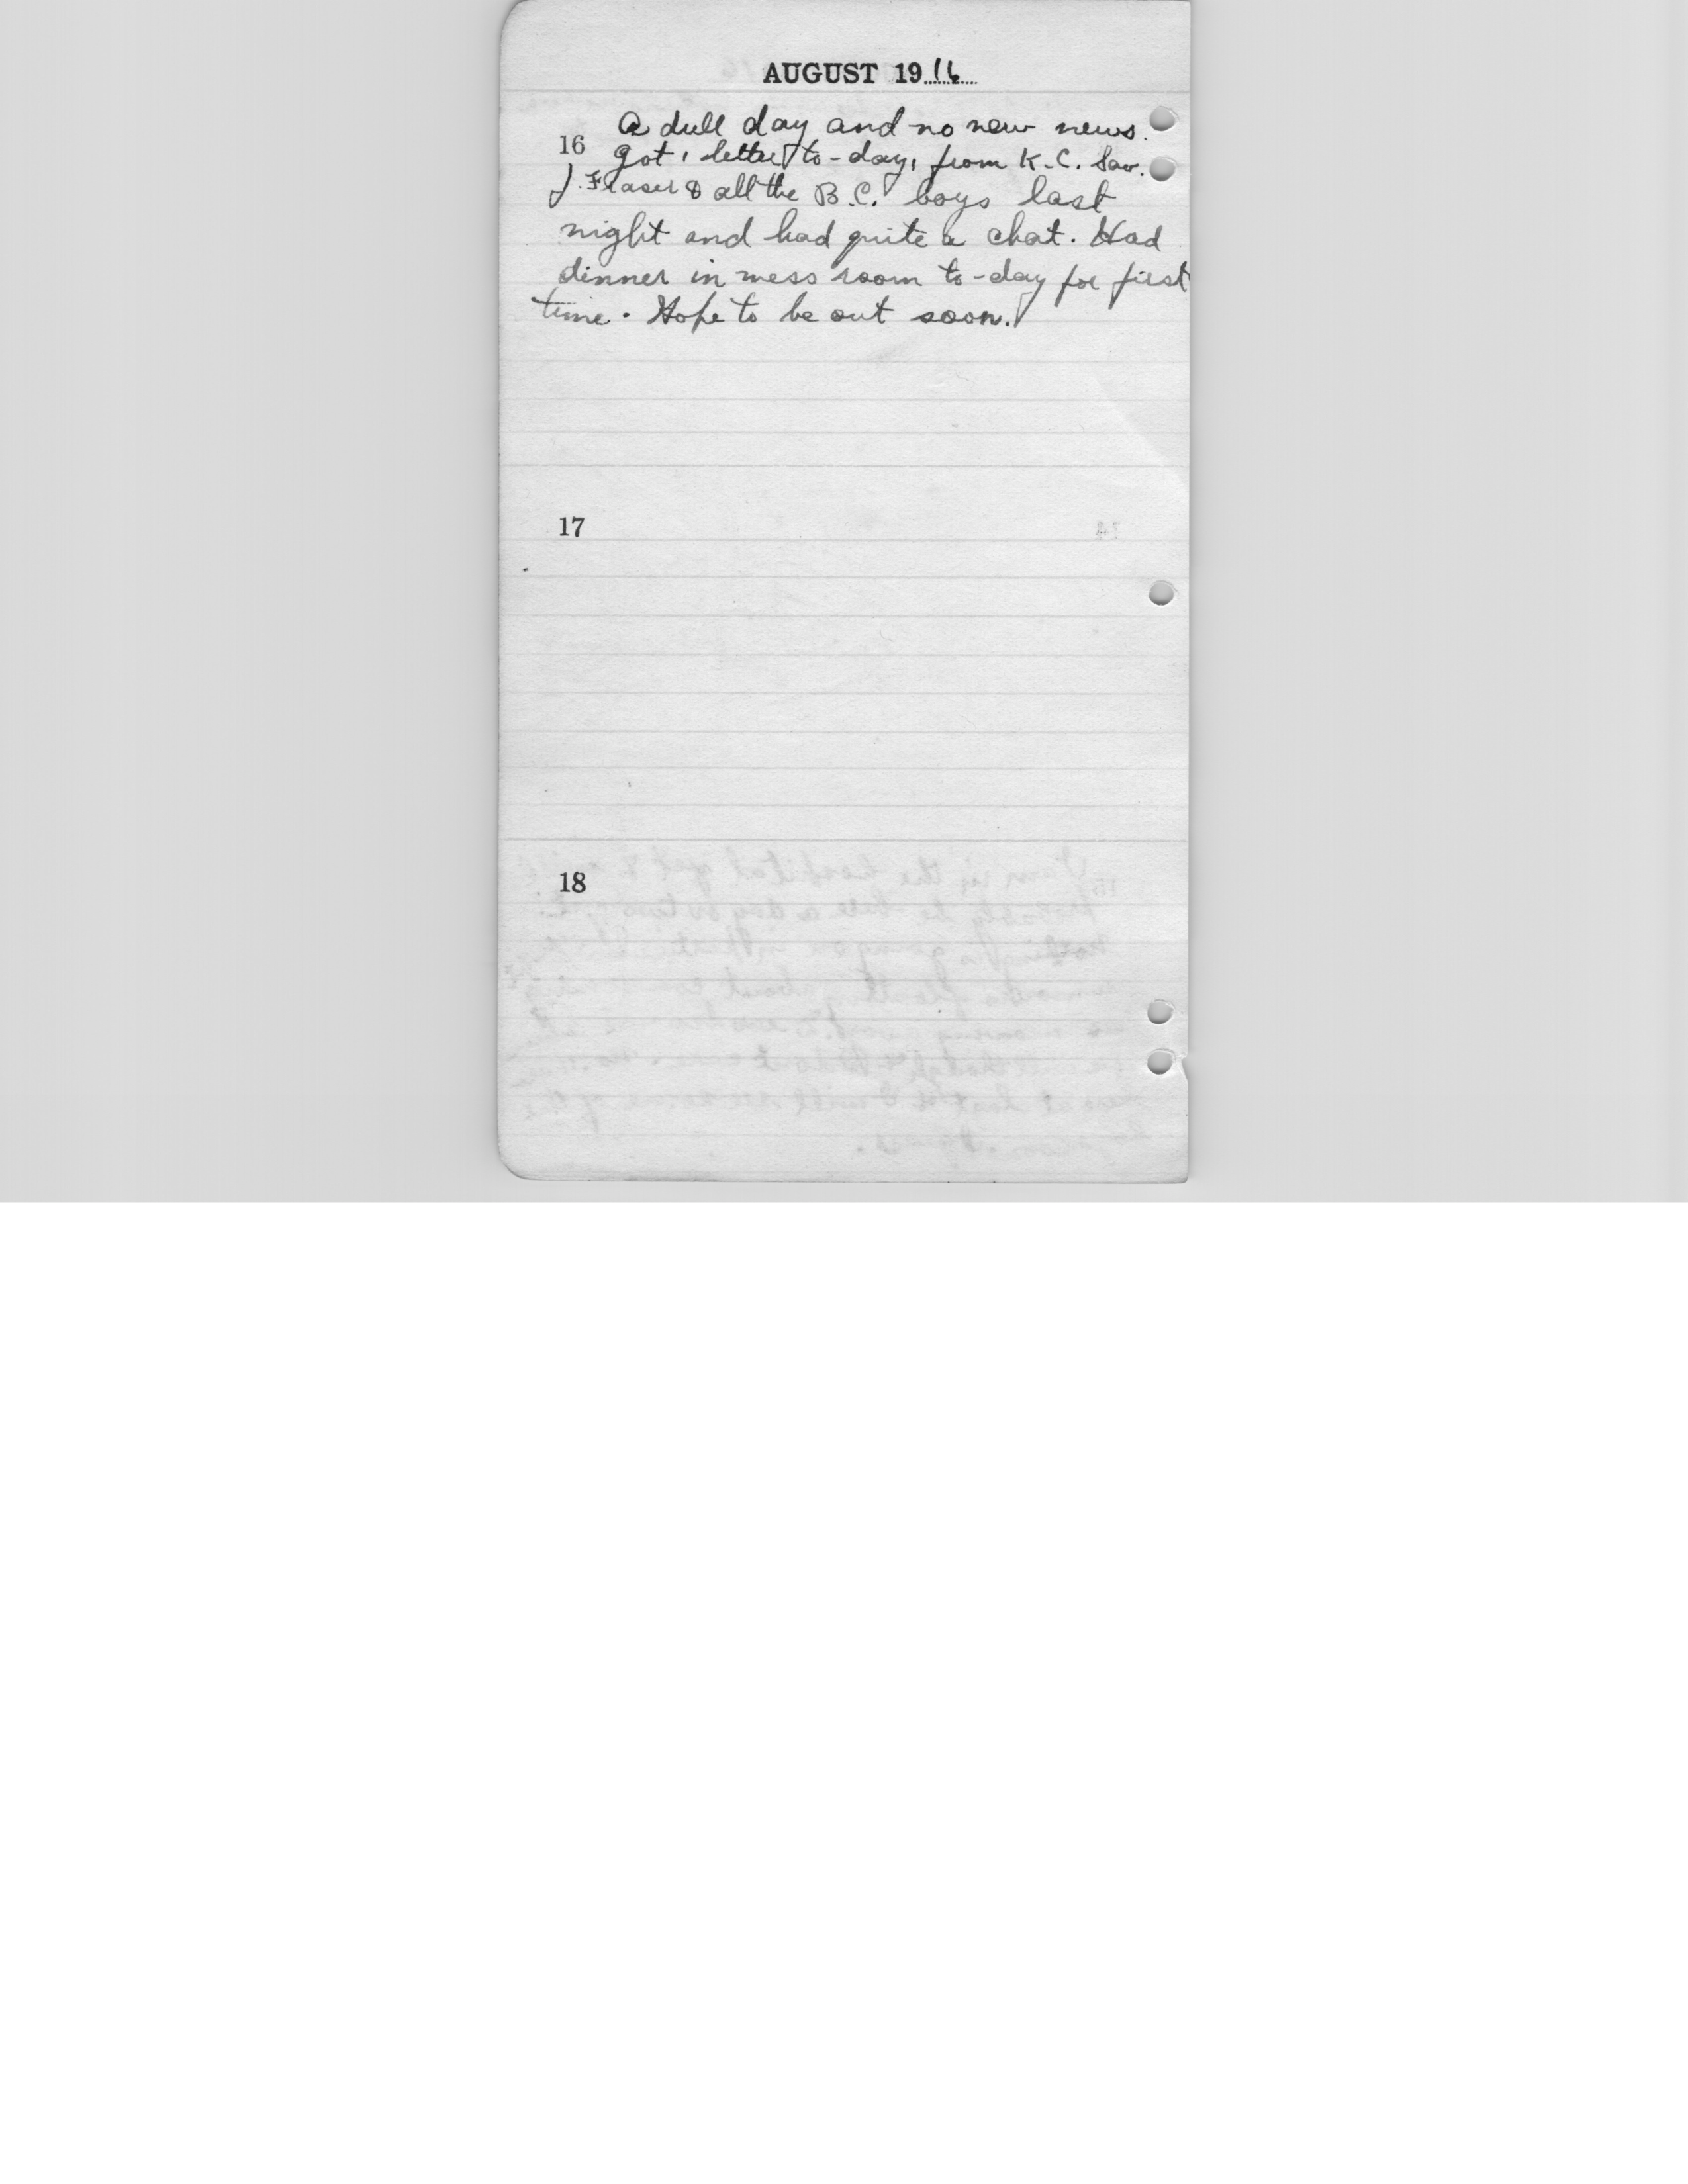 AUGUST 1916
A dull day and no new news.
16 Got 1 letter to-day, from K.C. Saw
J. Fraser & all the B.C. boys last
night and had quite a chat. Had
dinner in mess room to-day for first
time. Hope to be out soon.
17
18